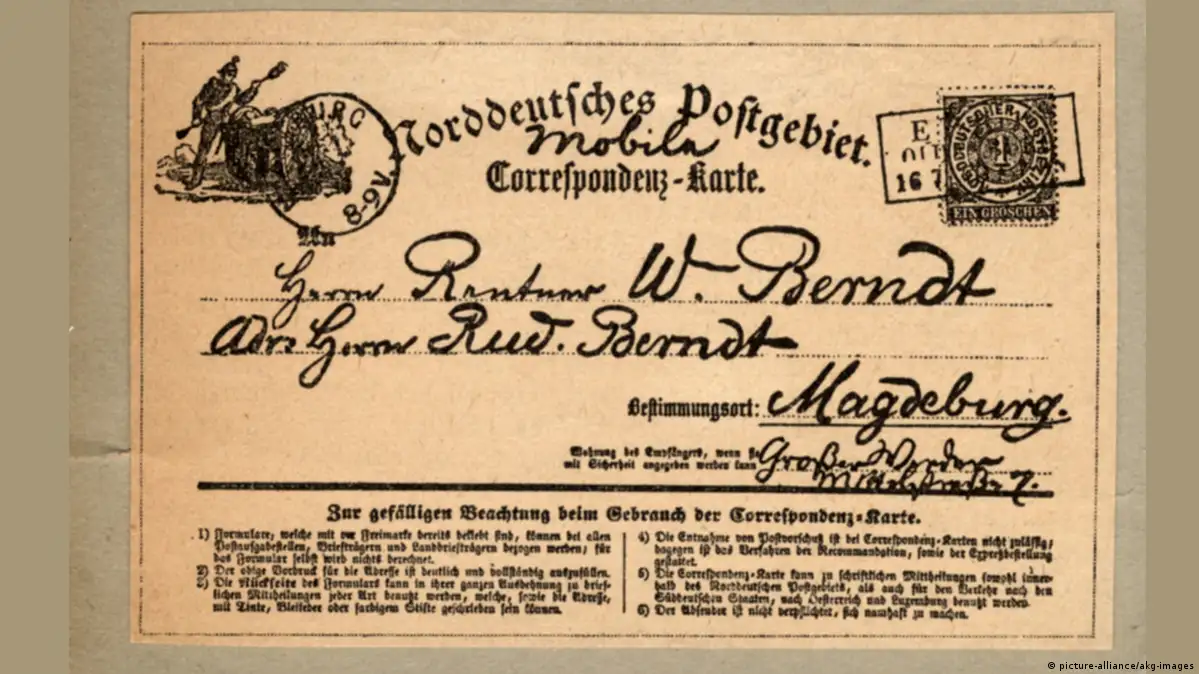 Norddeutsches Postgebiet.
Mobila
Correspondenz-Karte.
BURG
8-9V.
E
16 7
NORDDEUTSCHER POSTBEZIRK
1
EIN GROSCHEN
An
Herrn Rentner W. Berndt
Adr: Herrn Rud. Berndt
Bestimmungsort: Magdeburg.
Wohnung des Empfängers, wenn sie
mit Sicherheit angegeben werden kann
Großer Werder
Mittelstraße 7.
Zur gefälligen Beachtung beim Gebrauch der Correspondenz-Karte.
1) Formulare, welche mit der Freimarke bereits beklebt sind, können bei allen
Postaufgabestellen, Briefträgern und Landbriefträgern bezogen werden; für
das Formular selbst wird nichts berechnet.
2) Der obige Vordruck für die Adresse ist deutlich und vollständig auszufüllen.
3) Die Rückseite des Formulars kann in ihrer ganzen Ausdehnung zu brief-
lichen Mittheilungen jeder Art benutzt werden, welche, sowie die Adresse,
mit Tinte, Bleifeder oder farbigem Stifte geschrieben sein können.
4) Die Entnahme von Postvorschuß ist bei Correspondenz-Karten nicht zulässig,
dagegen ist das Verfahren der Recommandation, sowie der Expreßbestellung
gestattet.
5) Die Correspondenz-Karte kann zu schriftlichen Mittheilungen sowohl inner-
halb des Norddeutschen Postgebiets, als auch für den Verkehr nach den
Süddeutschen Staaten, nach Oesterreich und Luxemburg benutzt werden.
6) Der Absender ist nicht verpflichtet, sich namhaft zu machen.
© picture-alliance/akg-images